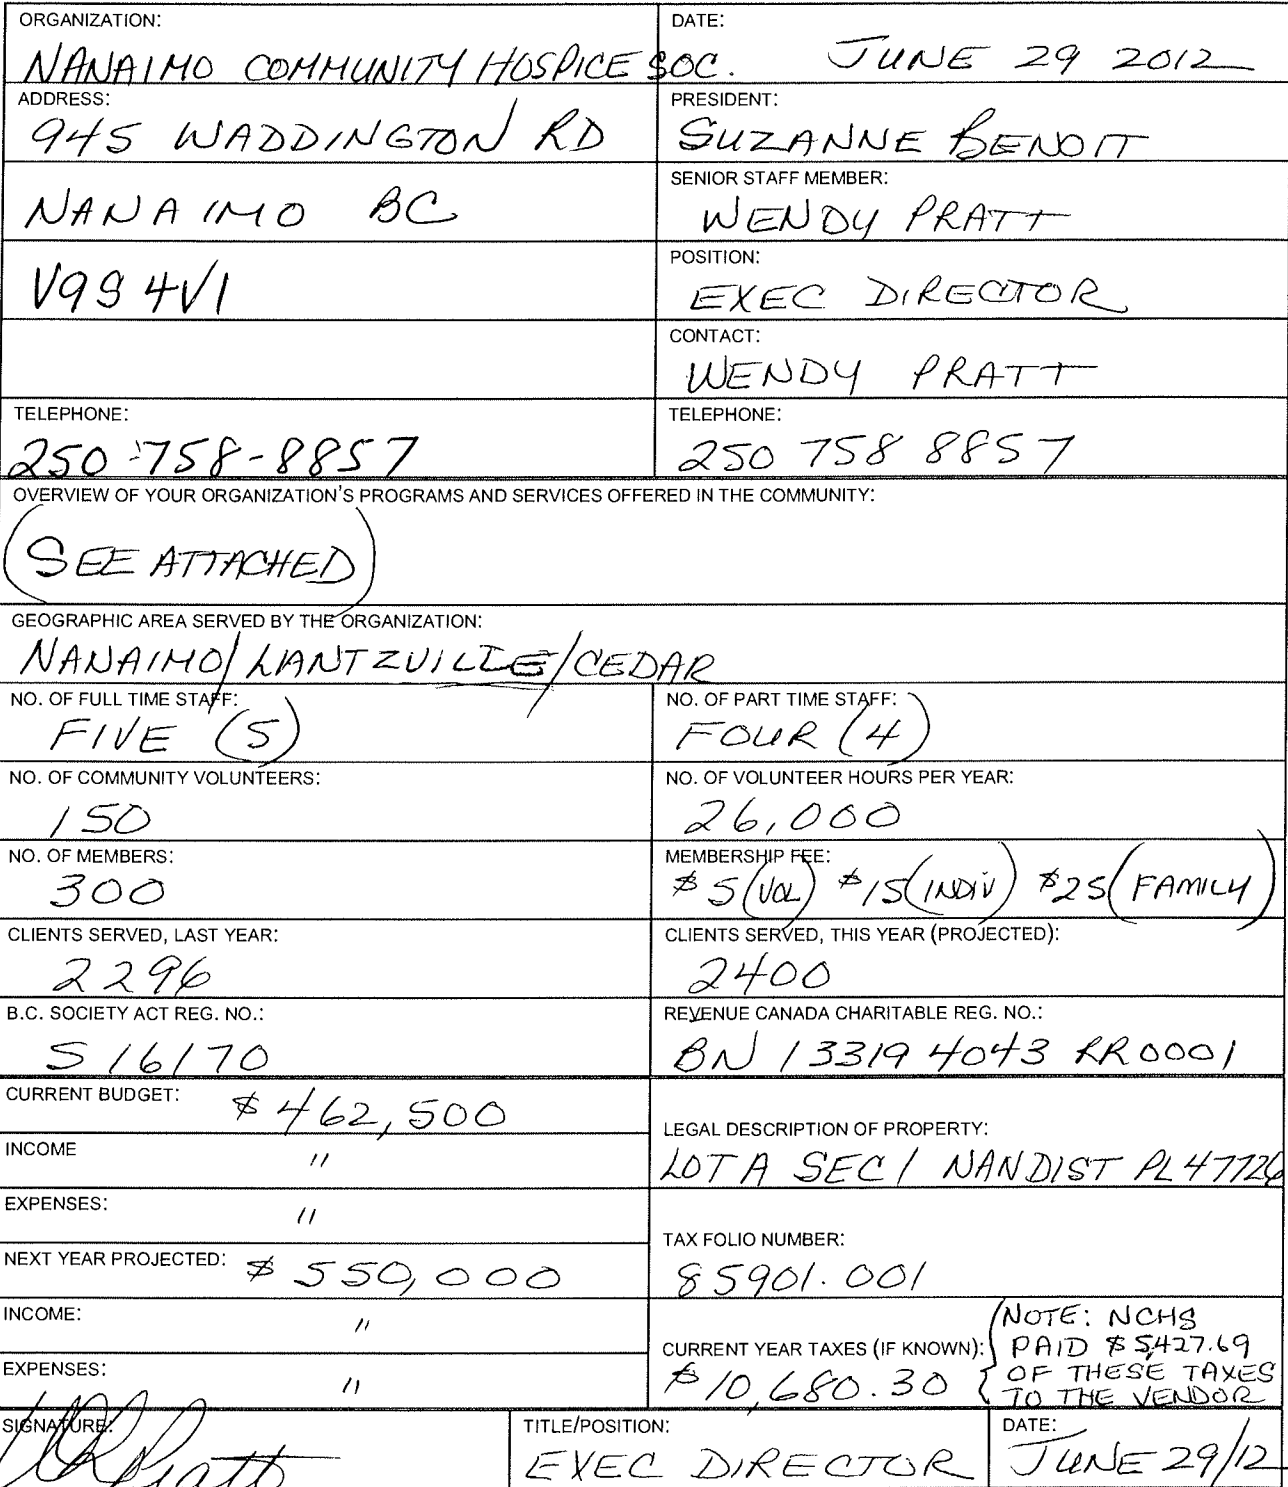 ORGANIZATION:
NANAIMO COMMUNITY HOSPICE SOC.
DATE:
JUNE 29 2012
ADDRESS:
945 WADDINGTON RD
PRESIDENT:
SUZANNE BENOIT
NANAIMO BC
SENIOR STAFF MEMBER:
WENDY PRATT
V9S 4V1
POSITION:
EXEC DIRECTOR
CONTACT:
WENDY PRATT
TELEPHONE:
250-758-8857
TELEPHONE:
250 758 8857
OVERVIEW OF YOUR ORGANIZATION'S PROGRAMS AND SERVICES OFFERED IN THE COMMUNITY:
(SEE ATTACHED)
GEOGRAPHIC AREA SERVED BY THE ORGANIZATION:
NANAIMO/LANTZVILLE/CEDAR
NO. OF FULL TIME STAFF:
FIVE (5)
NO. OF PART TIME STAFF:
FOUR (4)
NO. OF COMMUNITY VOLUNTEERS:
150
NO. OF VOLUNTEER HOURS PER YEAR:
26,000
NO. OF MEMBERS:
300
MEMBERSHIP FEE:
$5(VOL) $15(INDIV) $25(FAMILY)
CLIENTS SERVED, LAST YEAR:
2296
CLIENTS SERVED, THIS YEAR (PROJECTED):
2400
B.C. SOCIETY ACT REG. NO.:
S16170
REVENUE CANADA CHARITABLE REG. NO.:
BN 13319 4043 RR0001
CURRENT BUDGET: $462,500
INCOME "
EXPENSES: "
LEGAL DESCRIPTION OF PROPERTY:
LOT A SEC 1 NAN DIST PL 47726
NEXT YEAR PROJECTED: $550,000
TAX FOLIO NUMBER:
85901.001
INCOME: "
EXPENSES: "
CURRENT YEAR TAXES (IF KNOWN):
$10,680.30
NOTE: NCHS
PAID $5,427.69
OF THESE TAXES
TO THE VENDOR
SIGNATURE:
Pratt
TITLE/POSITION:
EXEC DIRECTOR
DATE:
JUNE 29/12